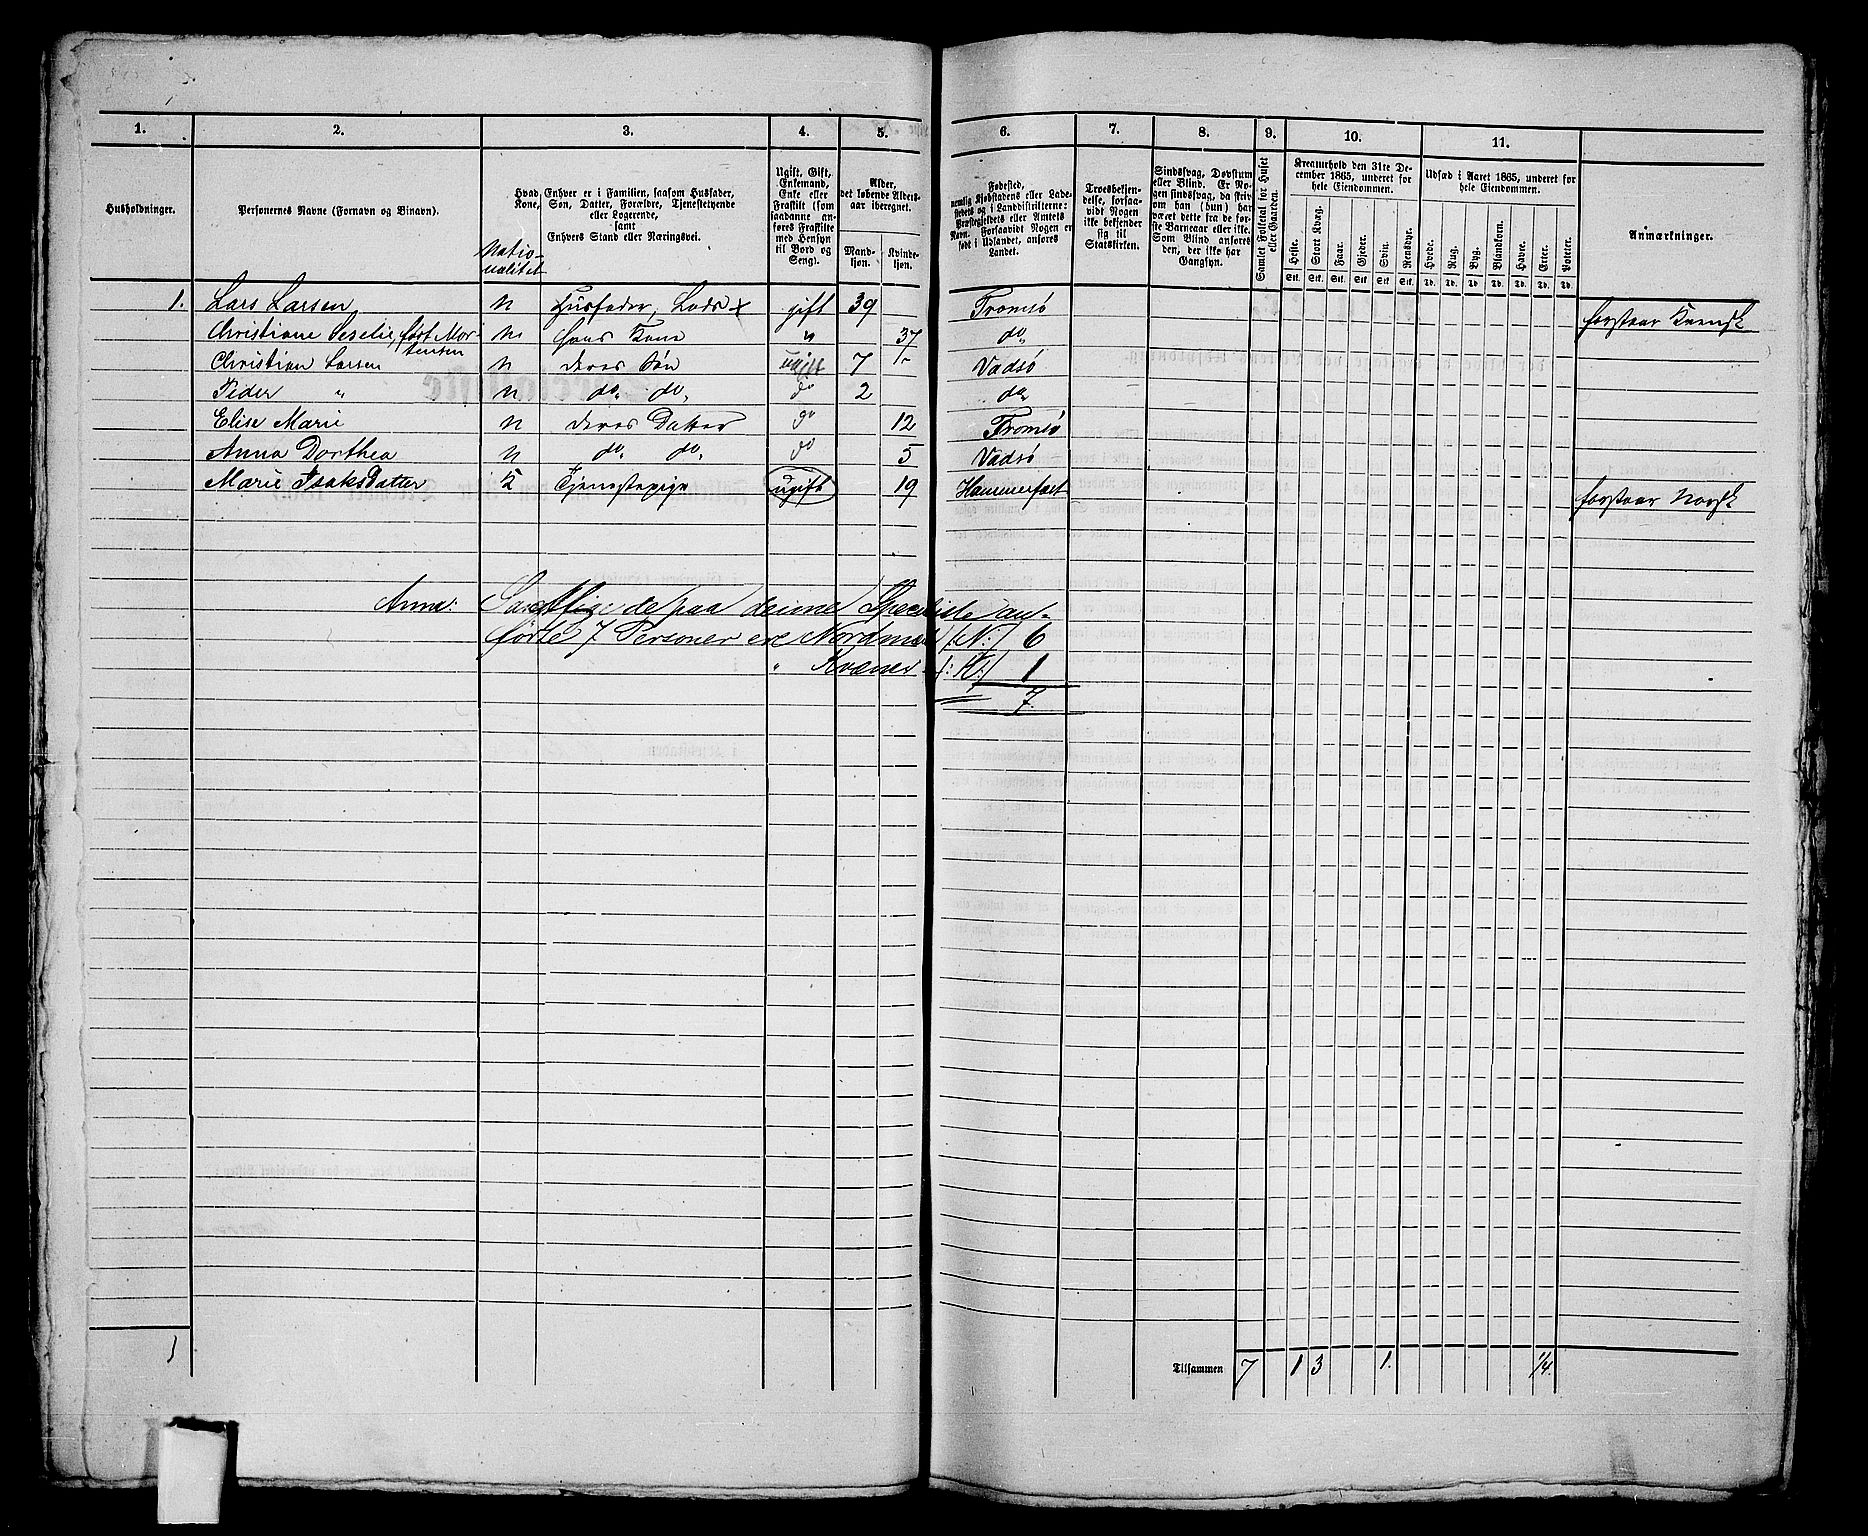 1. 2. 3. 4. 5. 6. 7. 8. 9. 10. 11.
Husholdninger.
Personernes Navne (Fornavn og Binavn).
Hvad Enhver er i Familien, saasom Husfader,
Kone, Søn, Datter, Forældre, Tjenestetyende
eller Logerende,
samt
Enhvers Stand eller Næringsvei.
Natio-
nalitet
Ugift, Gift,
Enkemand,
Enke eller
Fraskilt (som
saadanne an-
føres Fraskilte
med Hensyn
til Bord og
Seng).
Alder,
det løbende Alders-
aar iberegnet.
Mand-
kjøn.
Kvinde-
kjøn.
Fødested,
nemlig Kjøbstadens eller Lade-
stedets og i Landdistrikterne:
Præstegjeldets eller Amtets
Navn. Forsaavidt Nogen er
født i Udlandet, anføres
Landet.
Troesbekjen-
delse, forsaa-
vidt Nogen
ikke bekjender
sig til
Statskirken.
Sindssvag, Døvstum
eller Blind. Er No-
gen sindssvag, da skriv
om han (hun) har
været dette fra de før-
ste Barneaar eller ikke.
Som Blind anføres
den, der ikke har
Gangsyn.
Samlet Folketal for Huset
eller Gaarden.
Kreaturhold den 31te De-
cember 1865, underet for
hele Eiendommen.
Heste. Stort Kvæg. Faar. Gjeder. Svin. Rensdyr.
Stk. Stk. Stk. Stk. Stk. Stk.
Udsæd i Aaret 1865, underet for
hele Eiendommen.
Hvede. Rug. Byg. Blandkorn. Havre. Erter. Poteter.
Td. Td. Td. Td. Td. Td. Td.
Anmærkninger.
1. Lars Larsen n Husfader, Lods x gift 39 Tromsø forstaar Kvensk
Christiane Seselie, født Mor- n hans Kone " 37 do
tensen
Christian Larsen n deres Søn ugift 7 Vadsø
Peder " n do. do. do 2 do
Elise Marie n deres Datter do 12 Tromsø
Anna Dorthea n do. do. do 5 Vadsø
Marie Isaksdatter K Tjenestepige ugift 19 Hammerfest forstaar Norsk
Anm: Samtlige de paa denne Specialliste an-
førte 7 Personer ere Nordmænd (:N:) 6
" Kvæner (:K:) 1
7.
1 Tilsammen 7 1 3 1. 1/4.